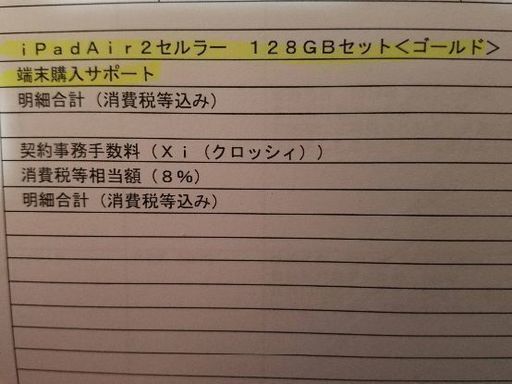 iPadAir2セルラー　128GBセット<ゴールド>
端末購入サポート
明細合計(消費税等込み)
契約事務手数料(Xi(クロッシィ))
消費税等相当額(8%)
明細合計(消費税等込み)